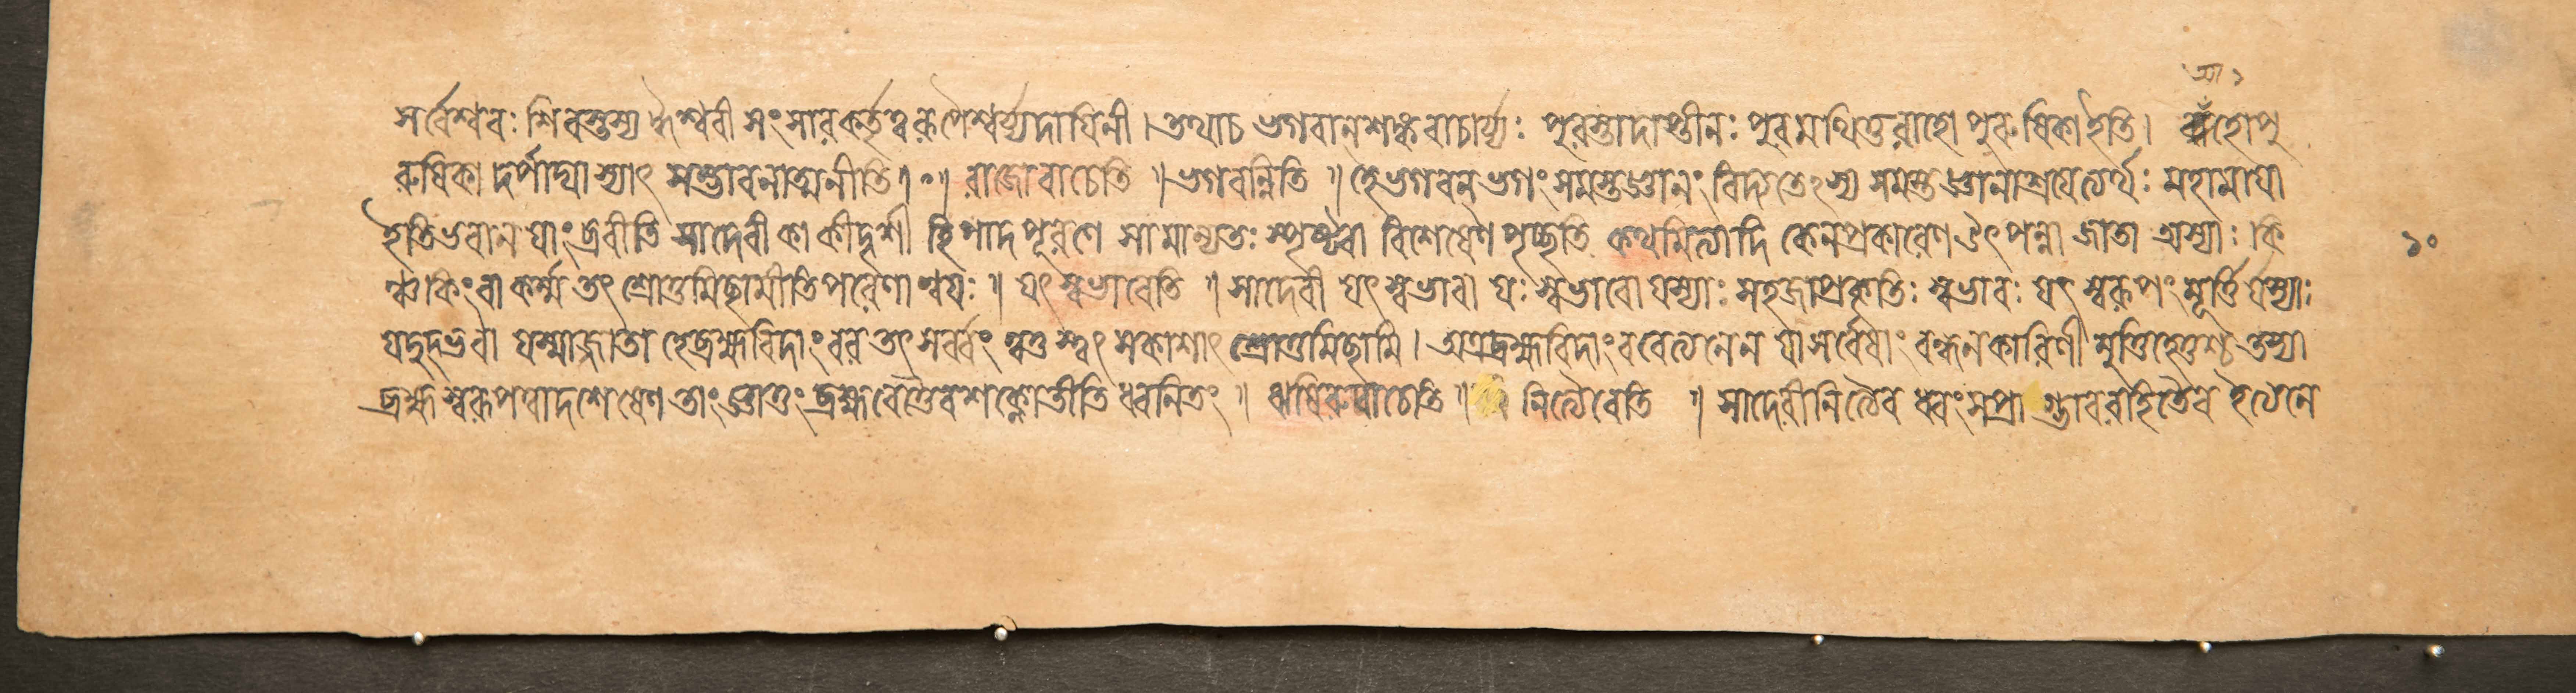 আ ১
সর্বেশ্বরঃ শিবস্তস্য ঐশ্বরী সংসারকর্তৃত্বরূপৈশ্বর্য্যদায়িনী। তথাচ ভগবান্শঙ্করাচার্য্যঃ পুরস্তাদাস্তীনঃ পুরমথিতুরাহো পুরুষিকা ইতি। আঁহোপু
রুষিকা দর্পাদ্যা স্যাৎ সম্ভাবনাত্মনীতি॥০॥ রাজোবাচেতি ॥ ভগবন্নিতি ॥ হেভগবন্ ভগং সমস্তজ্ঞানং বিদ্যতেঽস্য সমস্তজ্ঞানাশ্রয়েত্যর্থঃ মহামায়া
ইতিভবান যাং ব্রবীতি সাদেবী কা কীদৃশী হি পাদপূরণে সামান্যতঃ স্পৃষ্ট্বা বিশেষেণ পৃচ্ছতি কথমিত্যাদি কেনপ্রকারেণ উৎপন্না জাতা অস্যাঃ কি
১০
ঞ্চ কিংবা কর্ম্ম তৎ শ্রোতুমিছামীতিপরেণান্বয়ঃ ॥ যৎস্বভাবেতি ॥ সাদেবী যৎস্বভাবা যঃ স্বভাবো যস্যাঃ সহজাপ্রকৃতিঃ স্বভাবঃ যৎস্বরূপং মূর্ত্তির্যস্যাঃ
যদুদ্ভবা যস্মাজ্জাতা হেব্রহ্মবিদাংবর তৎ সর্ব্বং ত্বত্তস্ত্বৎ সকাশাৎ শ্রোতুমিছামি। অত্রব্রহ্মবিদাংবরেত্যনেন যা সর্বেষাং বন্ধনকারিণী মুক্তিহেতুশ্চ তস্যা
ব্রহ্মস্বরূপত্বাদশেষেণ তাং জ্ঞাতুং ব্রহ্মবেত্তৈবশক্নোতীতি ধ্বনিতং ॥ ঋষিরুবাচেতি ॥ নিত্যৈবেতি ॥ সাদেবীনিত্যৈব ধ্বংসপ্রাগভাবরহিতৈব ইত্যনে